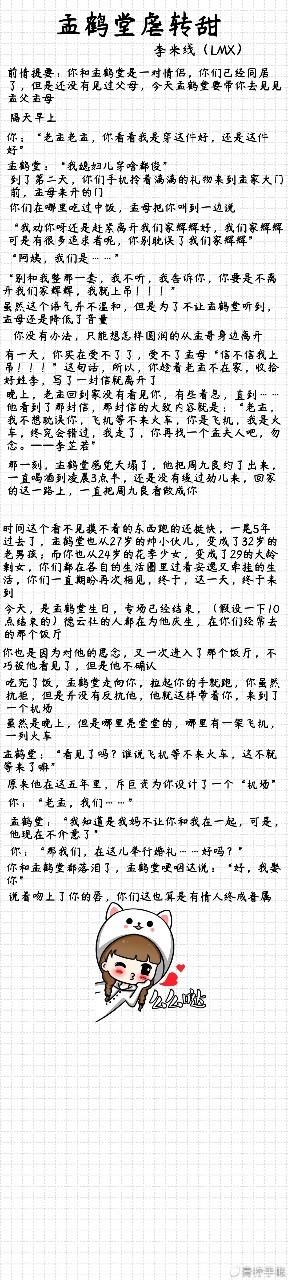 孟鹤堂虐转甜
李米线（LMX）
前情提要：你和孟鹤堂是一对情侣，你们已经同居
了，但是还没有见过父母，今天孟鹤堂要带你去见见
孟父孟母
隔天早上
你：“老孟老孟，你看看我是穿这件好，还是这件
好”
孟鹤堂：“我媳妇儿穿啥都俊”
到了第二天，你们手机拎着满满的礼物来到孟家大门
前，孟母来开的门
你们在哪里吃过中饭，孟母把你叫到一边说
“我劝你呀还是赶紧离开我们家辉辉好，我们家辉辉
可是有很多追求者呢，你别耽误了我们家辉辉”
“阿姨，我们是……”
“别和我整那一套，我不听，我告诉你，你要是不离
开我们家辉辉，我就上吊！！！”
虽然这个语气并不温和，但是为了不让孟鹤堂听到，
孟母还是降低了音量
你没有办法，只能想怎样圆润的从孟哥身边离开
有一天，你实在受不了了，受不了孟母“信不信我上
吊！！！”这句话，所以，你趁着老孟不在家，收拾
好娃李，写了一封信就离开了
晚上，老孟回到家没有看见你，有些着急，直到……
他看到了那封信，那封信的大致内容就是：“老孟，
我不想耽误你，飞机等不来火车，你是飞机，我是火
车，终究会错过，我走了，你再找一个孟夫人吧，勿
念。——李芷若”
那一刻，孟鹤堂感觉天塌了，他把周九良约了出来，
一直喝酒到凌晨3点半，还是没有缓过劲儿来，回家
的这一路上，一直把周九良看做成你
时间这个看不见摸不着的东西跑的还挺快，一晃5年
过去了，孟鹤堂也从27岁的帅小伙儿，变成了32岁的
老男孩；而你也从24岁的花季少女，变成了29的大龄
剩女，你们都在各自的生活圈里过着安逸又牵挂的生
活，你们一直期盼再次相见，终于，这一天，终于来
到
今天，是孟鹤堂生日，专场已经结束，（假设一下10
点结束的）德云社的人都在为他庆生，在你们经常去
的那个饭厅
你也是因为对他的思念，又一次进入了那个饭厅，不
巧被他看见了，但是他不确认
吃完了饭，孟鹤堂走向你，拉起你的手就跑，你虽然
抗拒，但是并没有反抗他，他就这样带着你，来到了
一个机场
虽然是晚上，但是哪里亮堂堂的，哪里有一架飞机，
一列火车
孟鹤堂：“看见了吗？谁说飞机等不来火车，这不就
等来了嘛”
原来他在这五年里，斥巨资为你设计了一个“机场”
你：“老孟，我们……”
孟鹤堂：“我知道是我妈不让你和我在一起，可是，
他现在不介意了”
你：“那我们，在这儿举行婚礼……好吗？”
你和孟鹤堂都落泪了，孟鹤堂哽咽达说：“好，我娶
你”
说着吻上了你的唇，你们这也算是有情人终成眷属
么么哒